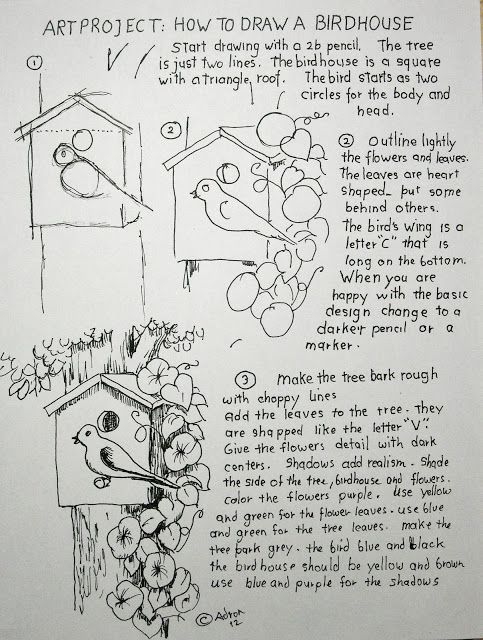 ART PROJECT: HOW TO DRAW A BIRDHOUSE
1
Start drawing with a 2b pencil. The tree
is just two lines. The birdhouse is a square
with a triangle roof. The bird starts as two
circles for the body and
head.
2
2 Outline lightly
the flowers and leaves.
The leaves are heart
shaped_ put some
behind others.
The bird's wing is a
letter "C" that is
long on the bottom.
When you are
happy with the basic
design change to a
darker pencil or a
marker.
3 make the tree bark rough
with choppy lines
Add the leaves to the tree. They
are shapped like the letter "V".
Give the flowers detail with dark
centers. Shadows add realism. Shade
the side of the tree, birdhouse and flowers.
color the flowers purple. Use yellow
and green for the flower leaves. use blue
and green for the tree leaves. make the
tree bark grey. the bird blue and black
the birdhouse should be yellow and brown
use blue and purple for the shadows
© Adron
12